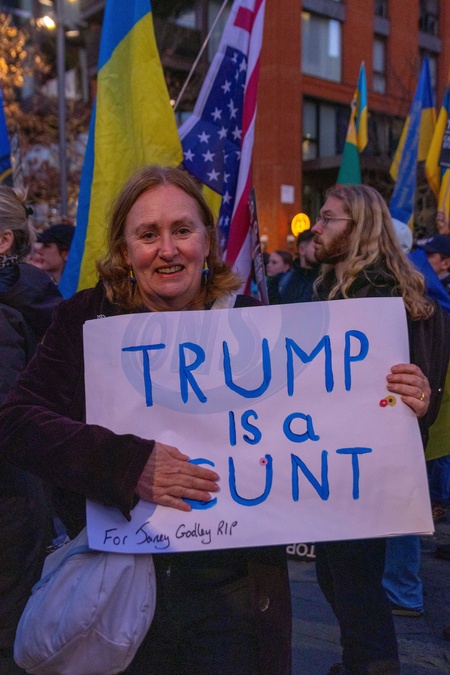 TRUMP
IS a
CUNT
For Janey Godley RIP
TOP